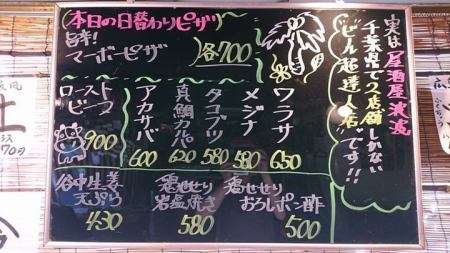 実は居酒屋浪漫
千葉県で2店舗しかない
ビール超達人店
です!!
本日の日替わりピザッ
旨辛!
マーボーピザ
各700
ワラサ
650
メジナ
580
タコブツ
580
真鯛カルパ
620
アカサバ
600
ロースト
ビーフ
900
鶏せせり
おろしポン酢
500
鶏せせり
岩塩焼き
580
谷中生姜
天ぷら
430